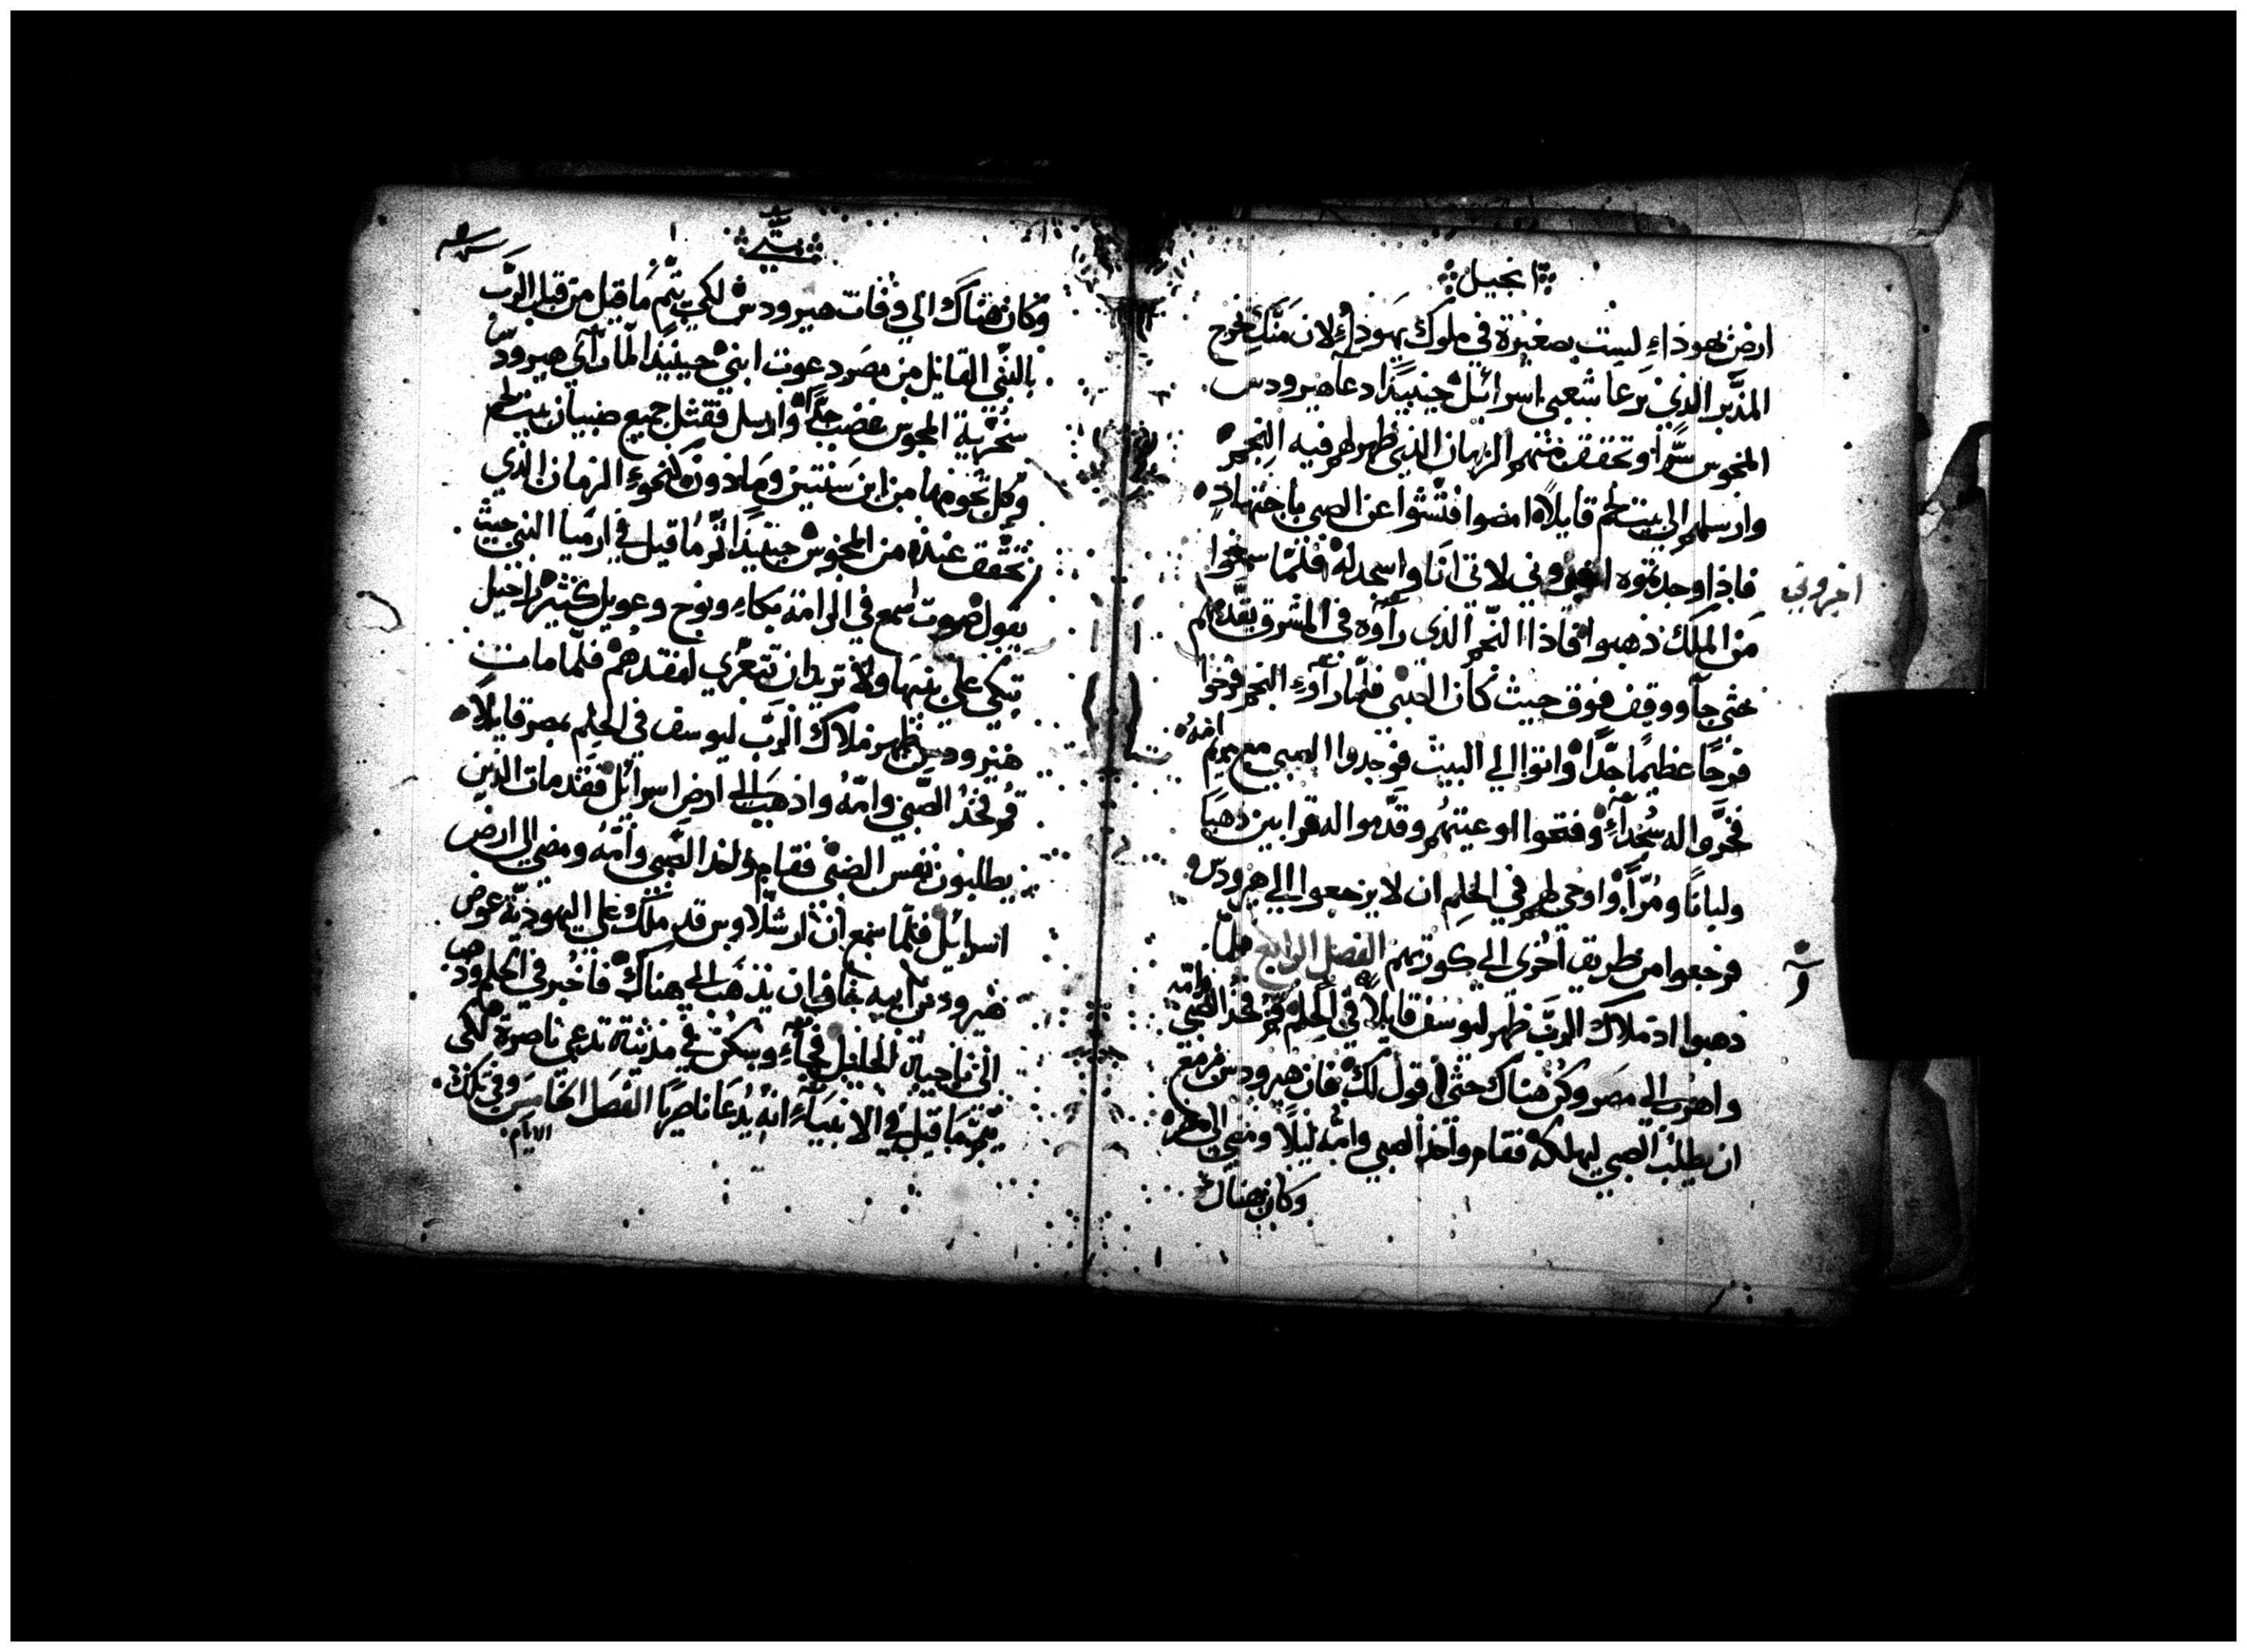 انجيل
ارض يهوذاء ليست بصغيرة في ملوك يهوذاء لان منك يخرج
المدبر الذي يرعا شعبي اسرائيل حينيذا دعا هيرودس
المجوس سرا وتحقق منهم الزمان الذي ظهر لهم فيه النجم
وارسلهم الى بيت لحم قايلا امضوا فتشوا عن الصبي باجتهاد
فاذا وجدتموه اخبروني لاتي انا واسجد له فلما سمعوا
اخبروني
من الملك ذهبوا فاذا النجم الذي رآوه في المشرق يقدمهم
حتى جآ ووقف فوق حيث كان الصبي فلما رآوء النجم فرحوا
فرحا عظيما جدا واتوا الي البيت فوجدوا الصبي مع مريم امه
فخروا له سجدآء وفتحوا اوعيتهم وقدموا له قرابين ذهبا
ولبانا ومرا واوحي لهم في الحلم ان لا يرجعوا الي هيرودس
فرجعوا من طريق اخرى الي كورتهم الفصل الرابع فلما
ذهبوا اذ ملاك الرب ظهر ليوسف قايلا في الحلم قم فخذ الصبي وامه
واهرب الي مصر وكن هناك حتى اقول لك فان هيرودس مزمع
ان يطلب الصبي ليهلكه فقام واخذ الصبي وامه ليلا ومضي الى مصر
وكان هناك
متي
وكان هناك الي وفات هيرودس لكي يتم ما قيل من قبل الرب
بالنبي القائل من مصر دعوت ابني حينيذا لما رآي هيرودس
سخرية المجوس غضب جدا وارسل فقتل جميع صبيان بيت لحم
وكل تخومها من ابن سنتين وما دونه كنحوء الزمان الذي
تحقق عنده من المجوس حينيذا تم ما قيل في ارميا النبي حيث
يقول صوت اسمع في الرامة بكاء ونوح وعويل كثير راحيل
تبكي على بنيها ولا تريد ان تتعزي لفقدهم فلما مات
هيرودس ظهر ملاك الرب ليوسف في الحلم بمصر قايلا
قم فخذ الصبي وامه واذهب الى ارض اسرائل فقد مات الذين
يطلبون نفس الصبي فقام واخذ الصبي وامه ومضي الي ارض
اسرائيل فلما سمع ان ارشلاوس قد ملك على اليهودية عوض
هيرودس ابيه خاف ان يذهب الى هناك فاخبر في الحلم وذهب
الى ناحية الجليل فجآء وسكن في مدينة تدعي ناصرة لكي
يتم ما قيل في الانبيآء انه يدعا ناصريا الفصل الخامس وفي تلك
الايام